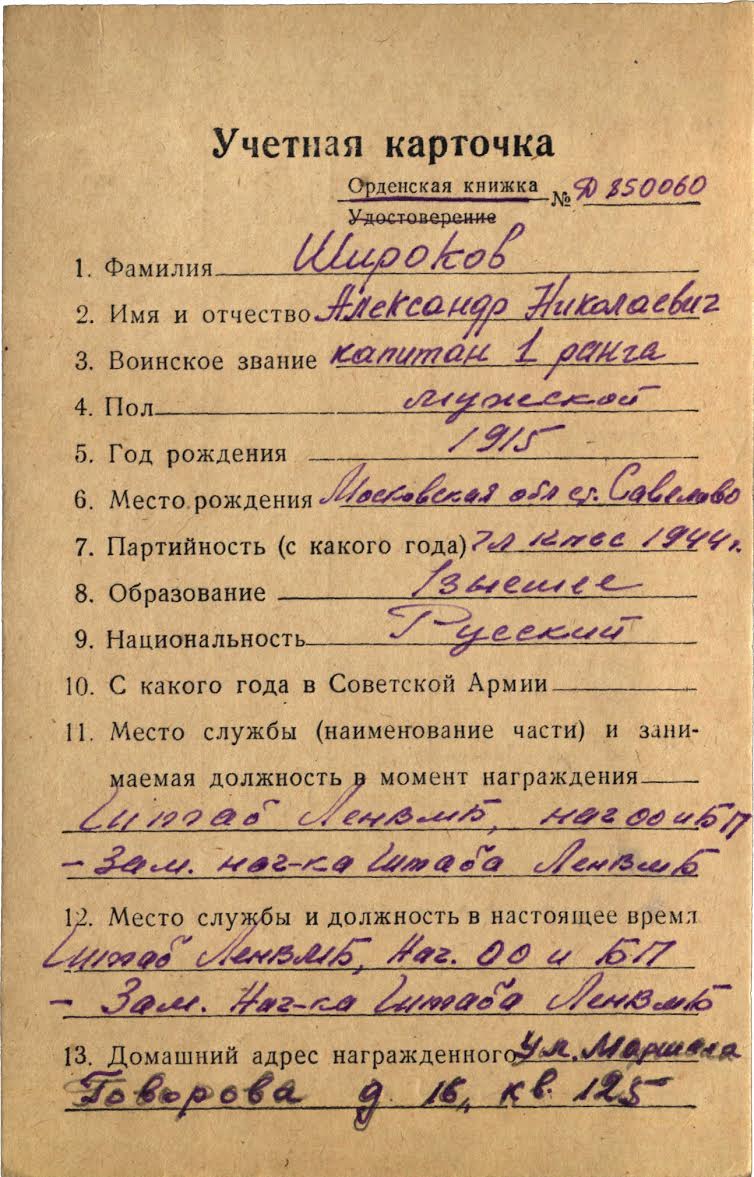 Учетная карточка
Орденская книжка № Д 850060
Удостоверение
1. Фамилия Широков
2. Имя и отчество Александр Николаевич
3. Воинское звание капитан 1 ранга
4. Пол мужской
5. Год рождения 1915
6. Место рождения Московская обл ст. Савелово
7. Партийность (с какого года) чл кпсс 1944 г.
8. Образование Высшее
9. Национальность Русский
10. С какого года в Советской Армии
11. Место службы (наименование части) и зани-
маемая должность в момент награждения
Штаб ЛенВМБ, нач ОО и БП
- Зам. нач-ка Штаба ЛенВМБ
12. Место службы и должность в настоящее время
Штаб ЛенВМБ, Нач. ОО и БП
- Зам. Нач-ка Штаба ЛенВМБ
13. Домашний адрес награжденного Ул. Маршала
Говорова д. 16, кв. 125